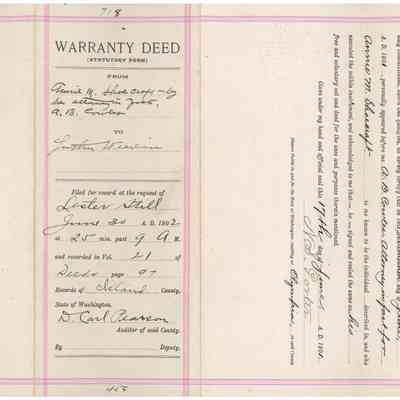 718
WARRANTY DEED
(STATUTORY FORM)
FROM
Annie M. Shoecraft by
her attorney in fact,
A. B. Cowles
TO
Filed for record at the request of
Lester Still
June 30 A. D. 1902
at 25 min. past 9 A. M.
and recorded in Vol. 41 of
Deeds page 97
Records of Island County,
State of Washington.
D. Carl Pearson
Auditor of said County.
By Deputy.
A. D. 1901, personally appeared before me A. B. Cowles Attorney in fact for
Annie M. Shoecraft to me known to be the individual described in, and who
executed the within instrument, and acknowledged to me that he signed and sealed the same as his
free and voluntary act and deed for the uses and purposes therein mentioned.
Given under my hand and official seal this 17th day of June A. D. 1901.
N. S. Porter
Notary Public in and for the State of Washington, residing at Olympia, in said County.